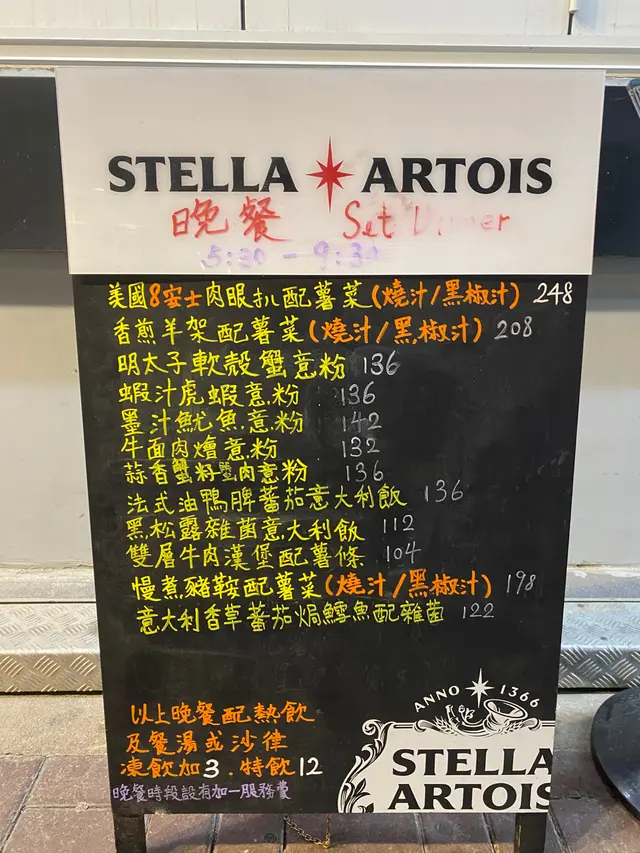 STELLA ARTOIS
晚餐 Set Dinner
5:30 - 9:30
美國8安士肉眼扒配薯菜(燒汁/黑椒汁) 248
香煎羊架配薯菜(燒汁/黑椒汁) 208
明太子軟殼蟹意粉 136
蝦汁虎蝦意粉 136
墨汁魷魚意粉 142
牛面肉燴意粉 132
蒜香蟹籽蟹肉意粉 136
法式油鴨脾蕃茄意大利飯 136
黑松露雜菌意大利飯 112
雙層牛肉漢堡配薯條 104
慢煮豬鞍配薯菜(燒汁/黑椒汁) 198
意大利香草蕃茄焗鱈魚配雜菌 122
以上晚餐配熱飲
及餐湯或沙律
凍飲加3．特飲12
晚餐時段設有加一服務費
ANNO 1366
STELLA
ARTOIS